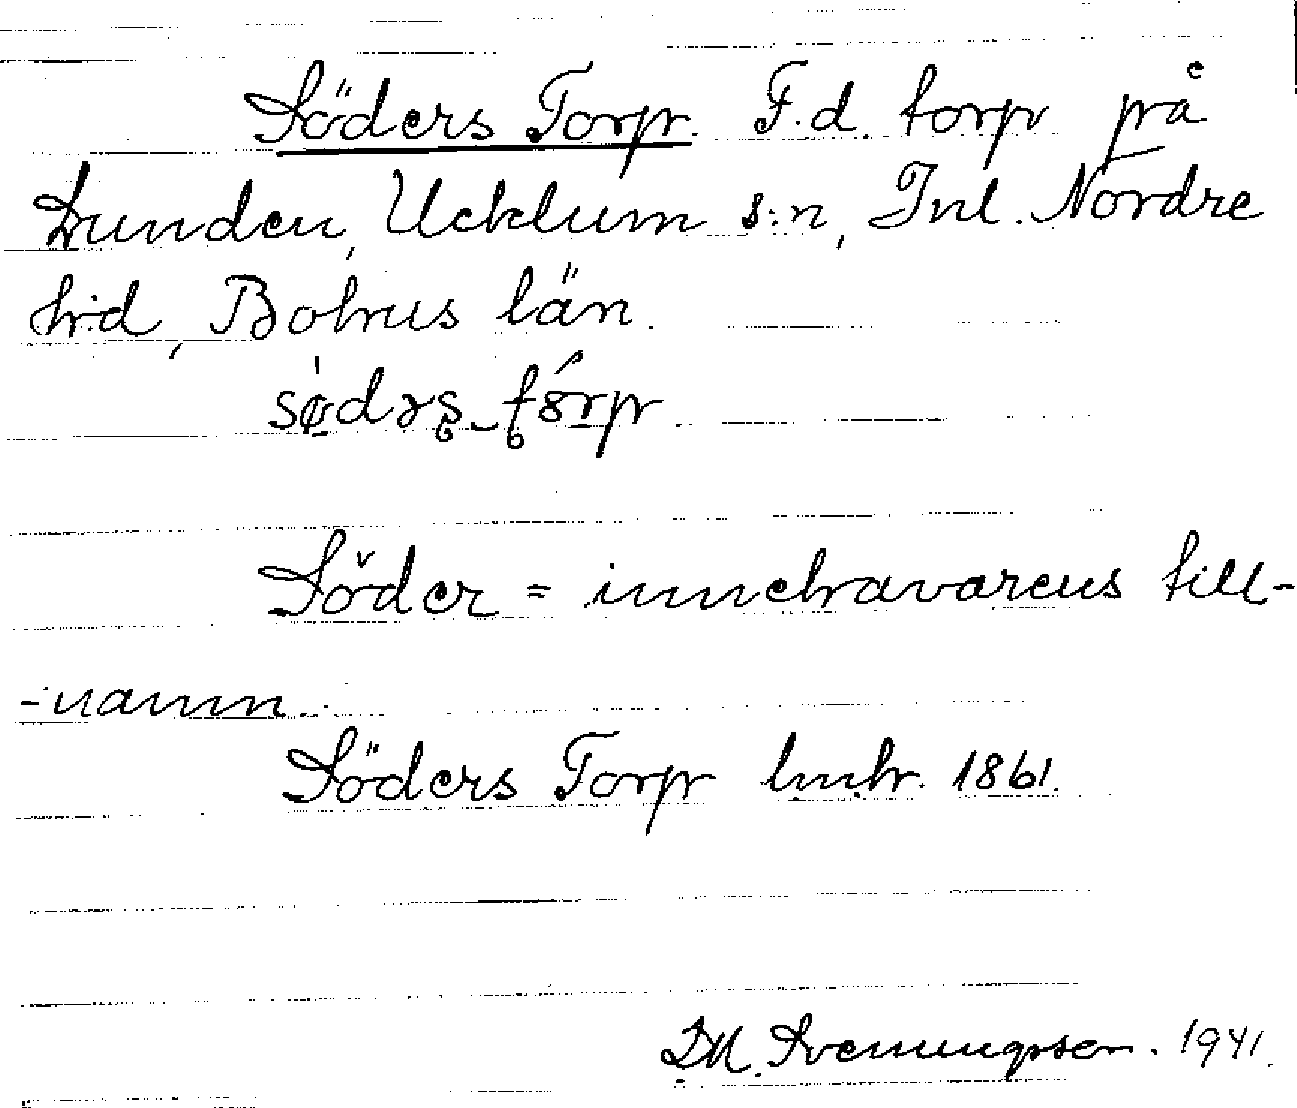 Söders Torp. F.d. torp på
Lunden, Ucklum s:n, Inl. Nordre
h:d, Bohus län.
Söder = innehavarens till-
-namn.
Söders Torp hmhr. 1861.
D.M. Svenungsson. 1941.